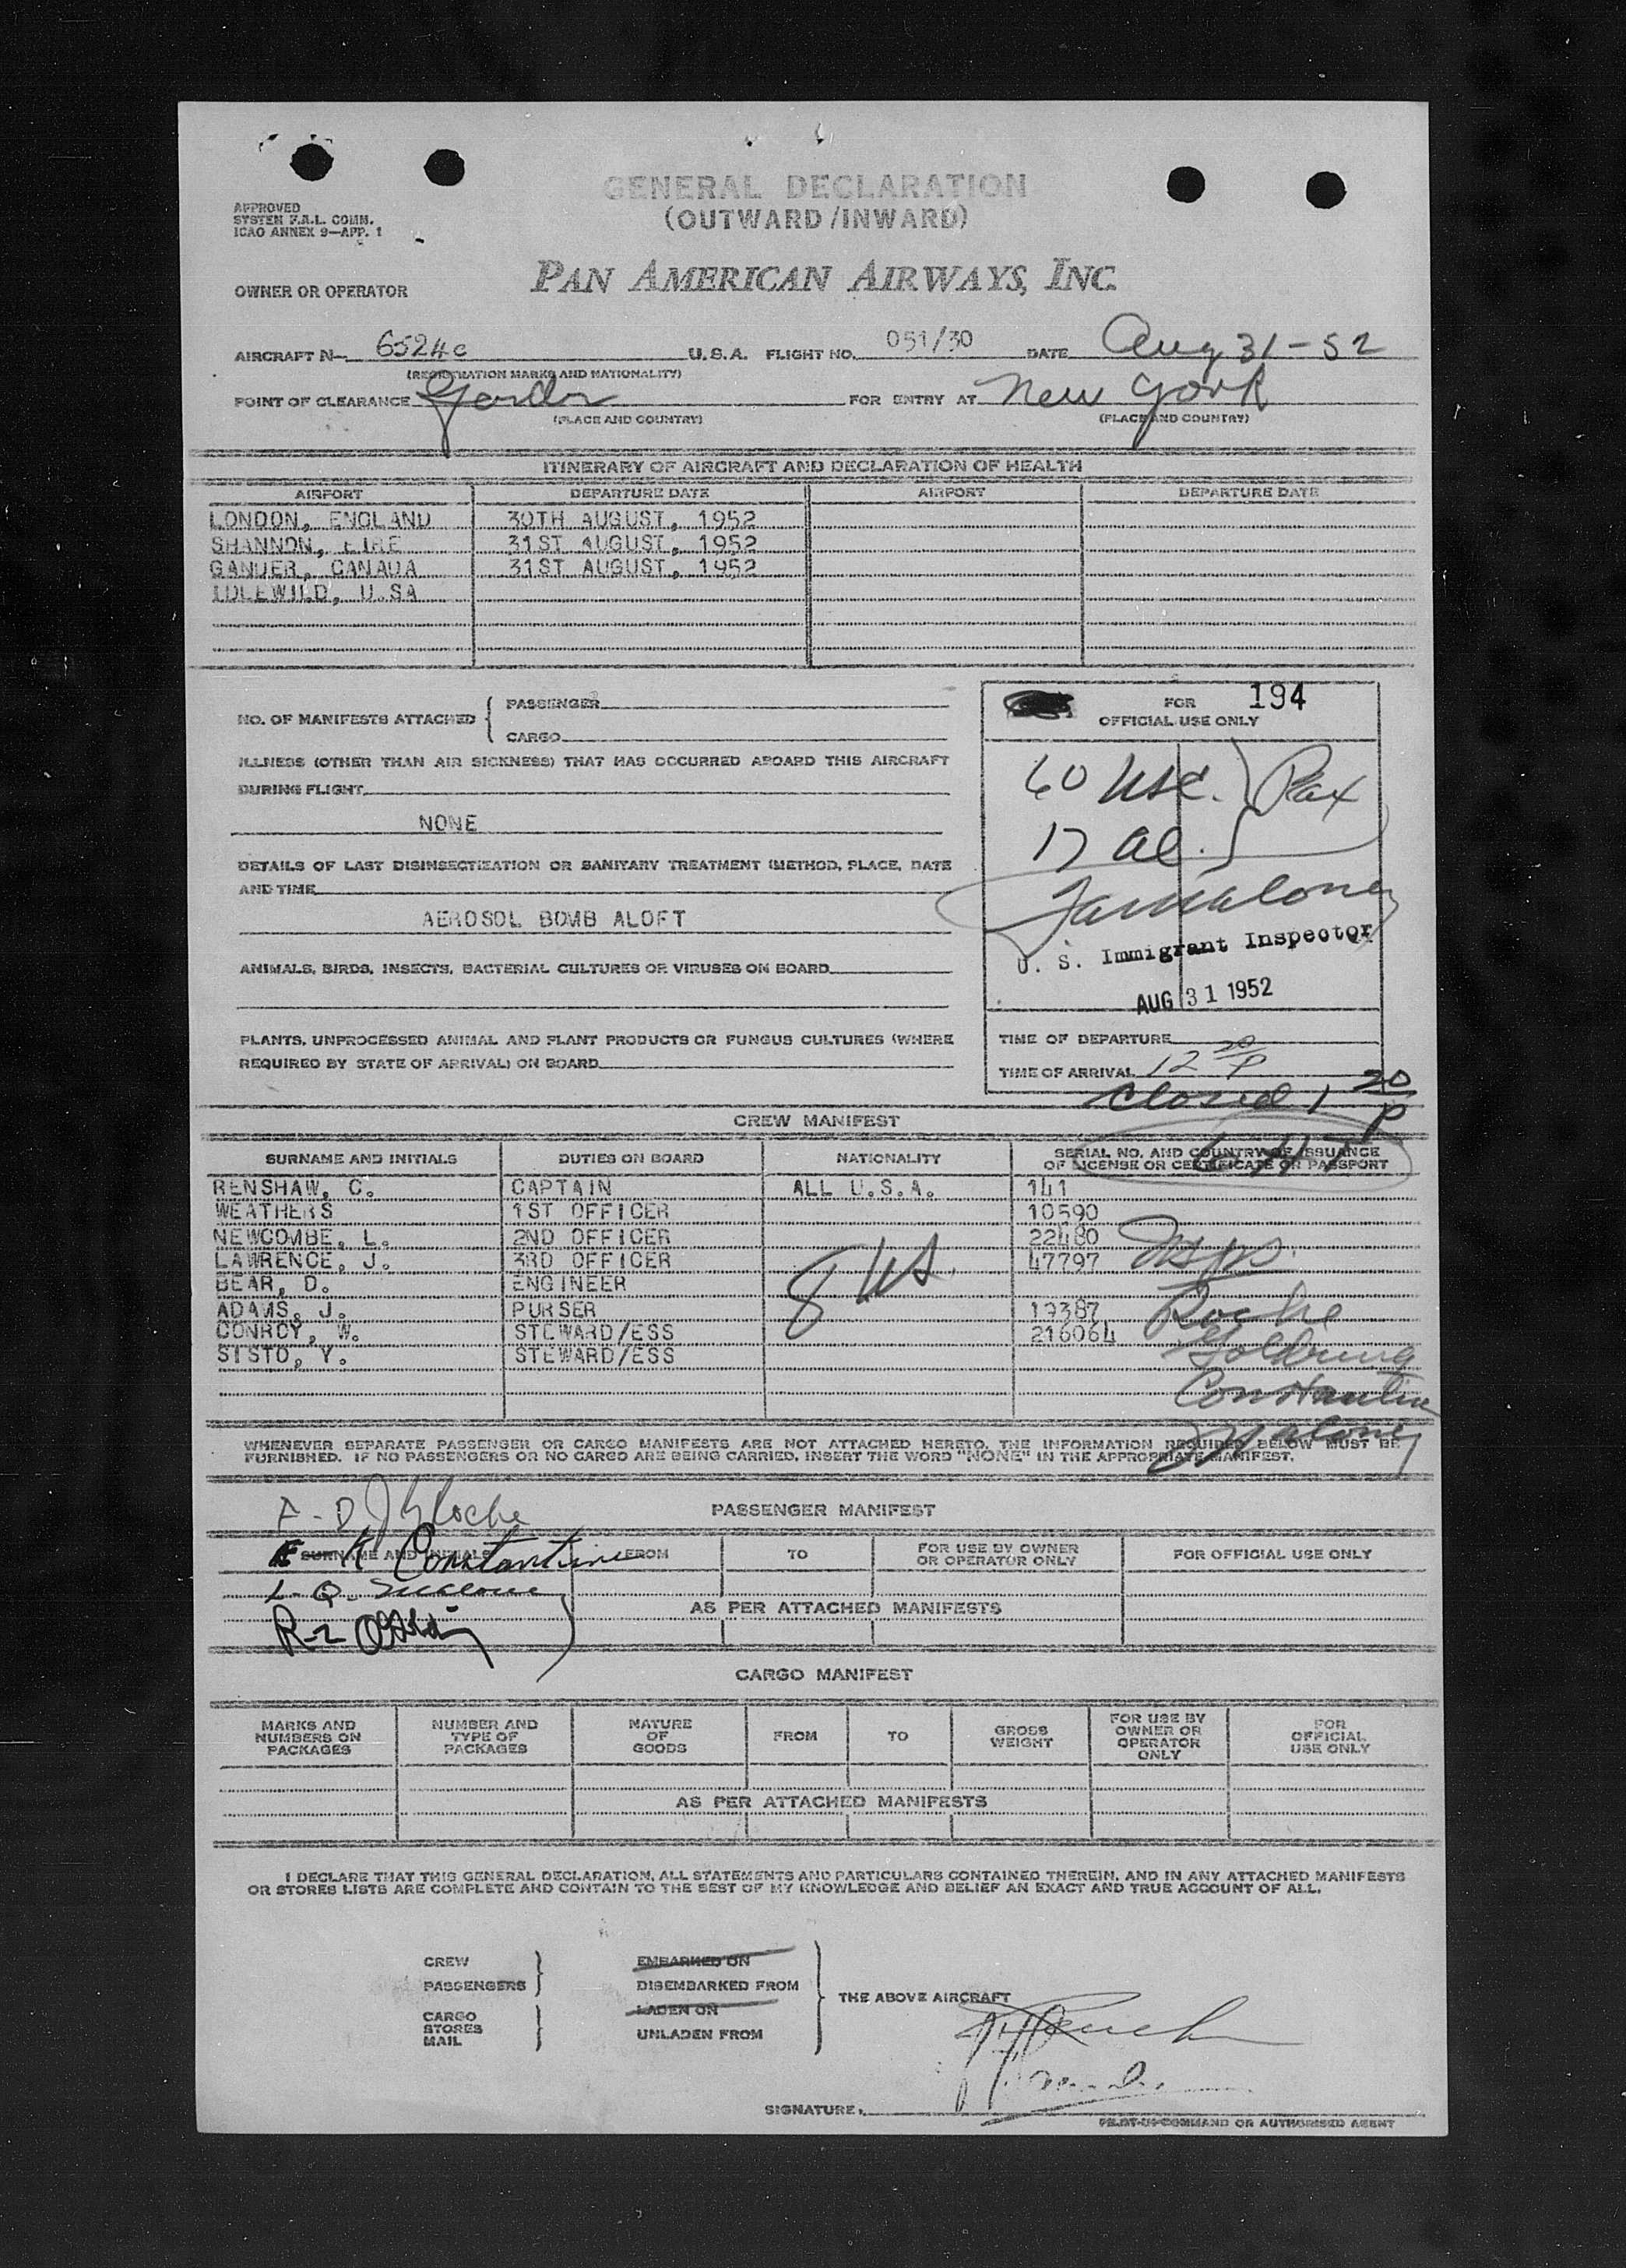 GENERAL DECLARATION
(OUTWARD/INWARD)
APPROVED
SYSTEM F.A.L. COMM.
ICAO ANNEX 9—APP. 1
OWNER OR OPERATOR PAN AMERICAN AIRWAYS, INC.
AIRCRAFT N- 6524c U.S.A. FLIGHT NO. 051/30 DATE Aug 31-52
(REGISTRATION MARKS AND NATIONALITY)
POINT OF CLEARANCE FOR ENTRY AT New York
(PLACE AND COUNTRY) (PLACE AND COUNTRY)
ITINERARY OF AIRCRAFT AND DECLARATION OF HEALTH
AIRPORT DEPARTURE DATE AIRPORT DEPARTURE DATE
LONDON, ENGLAND 30TH AUGUST, 1952
SHANNON, EIRE 31ST AUGUST, 1952
GANDER, CANADA 31ST AUGUST, 1952
IDLEWILD, U.SA
NO. OF MANIFESTS ATTACHED { PASSENGER
CARGO
ILLNESS (OTHER THAN AIR SICKNESS) THAT HAS OCCURRED ABOARD THIS AIRCRAFT
DURING FLIGHT
NONE
DETAILS OF LAST DISINSECTIZATION OR SANITARY TREATMENT (METHOD, PLACE, DATE
AND TIME
AEROSOL BOMB ALOFT
ANIMALS, BIRDS, INSECTS, BACTERIAL CULTURES OR VIRUSES ON BOARD
PLANTS, UNPROCESSED ANIMAL AND PLANT PRODUCTS OR FUNGUS CULTURES (WHERE
REQUIRED BY STATE OF ARRIVAL) ON BOARD
FOR 194
OFFICIAL USE ONLY
60 USC. } Pax
17 Al.
U. S. Immigrant Inspector
AUG 31 1952
TIME OF DEPARTURE
TIME OF ARRIVAL 12 30 P
Closed 1 20 P
CREW MANIFEST
SURNAME AND INITIALS DUTIES ON BOARD NATIONALITY SERIAL NO. AND COUNTRY OF ISSUANCE
OF LICENSE OR CERTIFICATE OR PASSPORT
RENSHAW, C. CAPTAIN ALL U.S.A. 141
WEATHERS 1ST OFFICER 10590
NEWCOMBE, L. 2ND OFFICER 22480
LAWRENCE, J. 3RD OFFICER 47797
BEAR, D. ENGINEER
8 US.
ADAMS, J. PURSER 19387 Roche
CONROY, W. STEWARD/ESS 216064
SISTO, Y. STEWARD/ESS
Constantine
Maloney
WHENEVER SEPARATE PASSENGER OR CARGO MANIFESTS ARE NOT ATTACHED HERETO, THE INFORMATION REQUIRED BELOW MUST BE
FURNISHED. IF NO PASSENGERS OR NO CARGO ARE BEING CARRIED, INSERT THE WORD "NONE" IN THE APPROPRIATE MANIFEST.
PASSENGER MANIFEST
K Constantine
SURNAME AND INITIALS FROM TO FOR USE BY OWNER
OR OPERATOR ONLY FOR OFFICIAL USE ONLY
AS PER ATTACHED MANIFESTS
CARGO MANIFEST
MARKS AND
NUMBERS ON
PACKAGES NUMBER AND
TYPE OF
PACKAGES NATURE
OF
GOODS FROM TO GROSS
WEIGHT FOR USE BY
OWNER OR
OPERATOR
ONLY FOR
OFFICIAL
USE ONLY
AS PER ATTACHED MANIFESTS
I DECLARE THAT THIS GENERAL DECLARATION, ALL STATEMENTS AND PARTICULARS CONTAINED THEREIN, AND IN ANY ATTACHED MANIFESTS
OR STORES LISTS ARE COMPLETE AND CONTAIN TO THE BEST OF MY KNOWLEDGE AND BELIEF AN EXACT AND TRUE ACCOUNT OF ALL.
CREW EMBARKED ON
PASSENGERS DISEMBARKED FROM
THE ABOVE AIRCRAFT
CARGO LADEN ON
STORES
MAIL UNLADEN FROM
SIGNATURE
PILOT-IN-COMMAND OR AUTHORISED AGENT